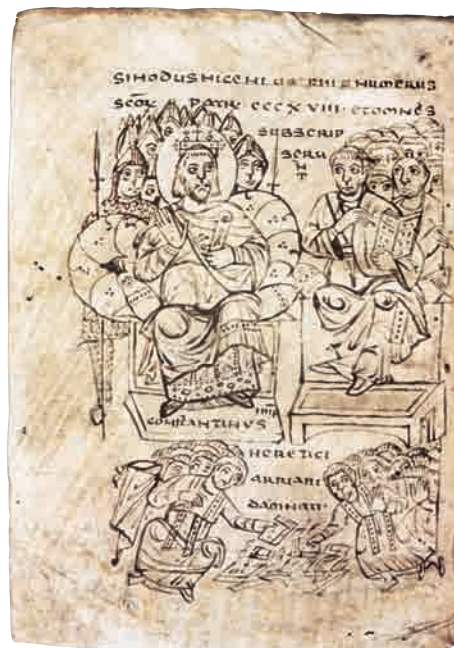 SINODUS NICENI NUMERUS
SCŌR PATR CCCXVIII · ET OMNES
SUBSCRIP
SERU
NT
IMP
CONSTANTINUS
HERETICI
ARRIANI
DAMNATI